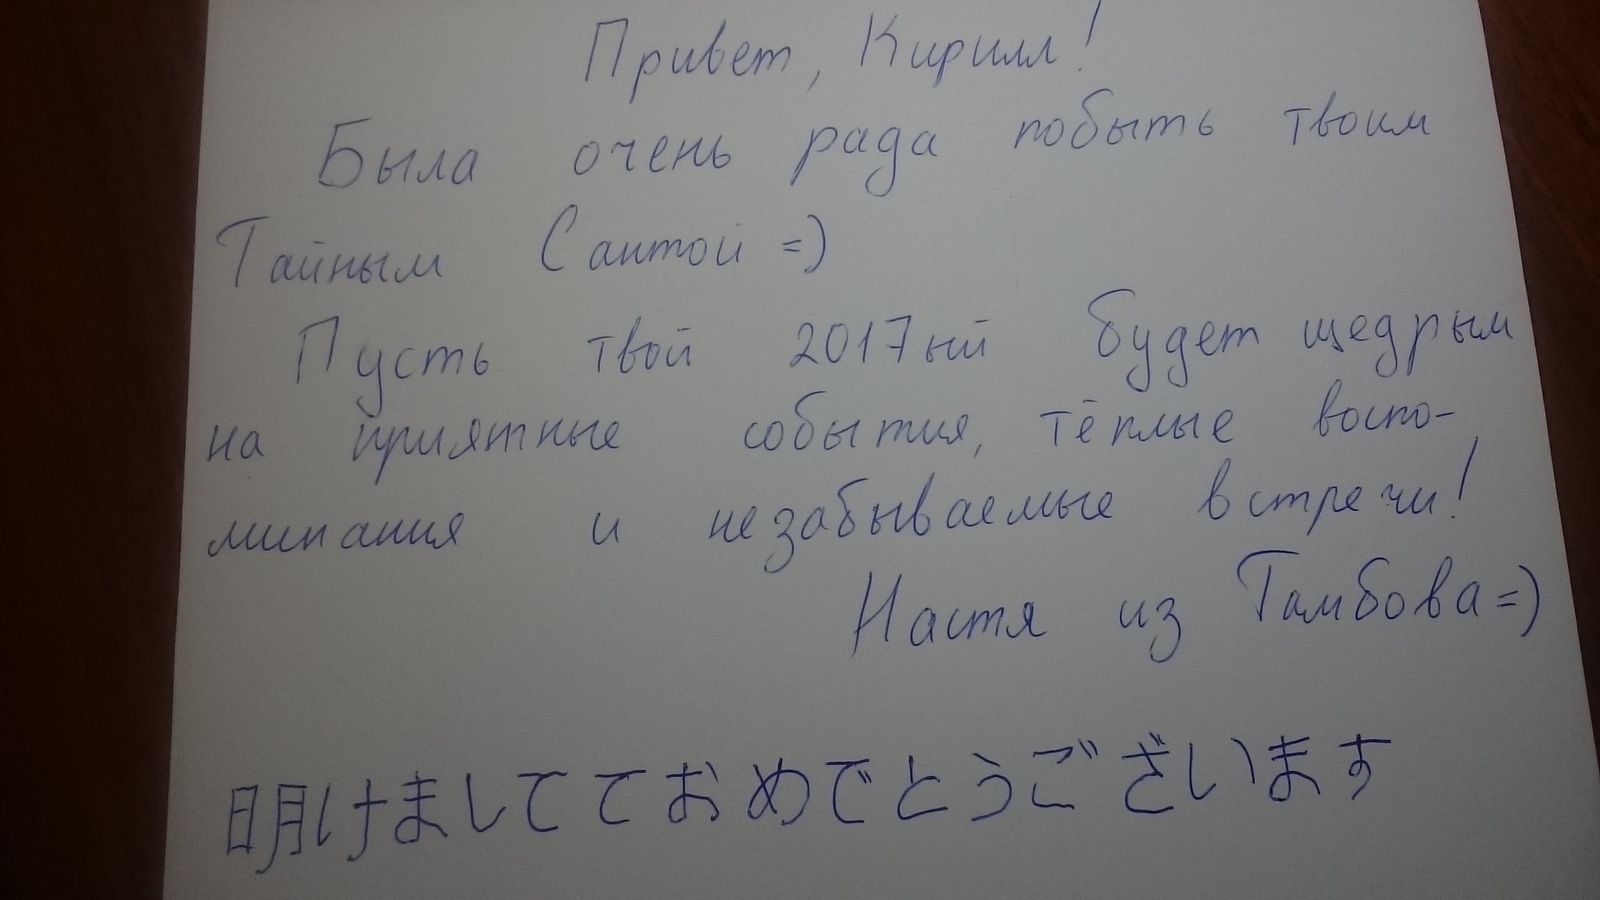 Привет, Кирилл!
Была очень рада побыть твоим
Тайным Сантой =)
Пусть твой 2017ый будет щедрым
на приятные события, тёплые воспо-
минания и незабываемые встречи!
Настя из Тамбова =)
明けましててておめでとうございます